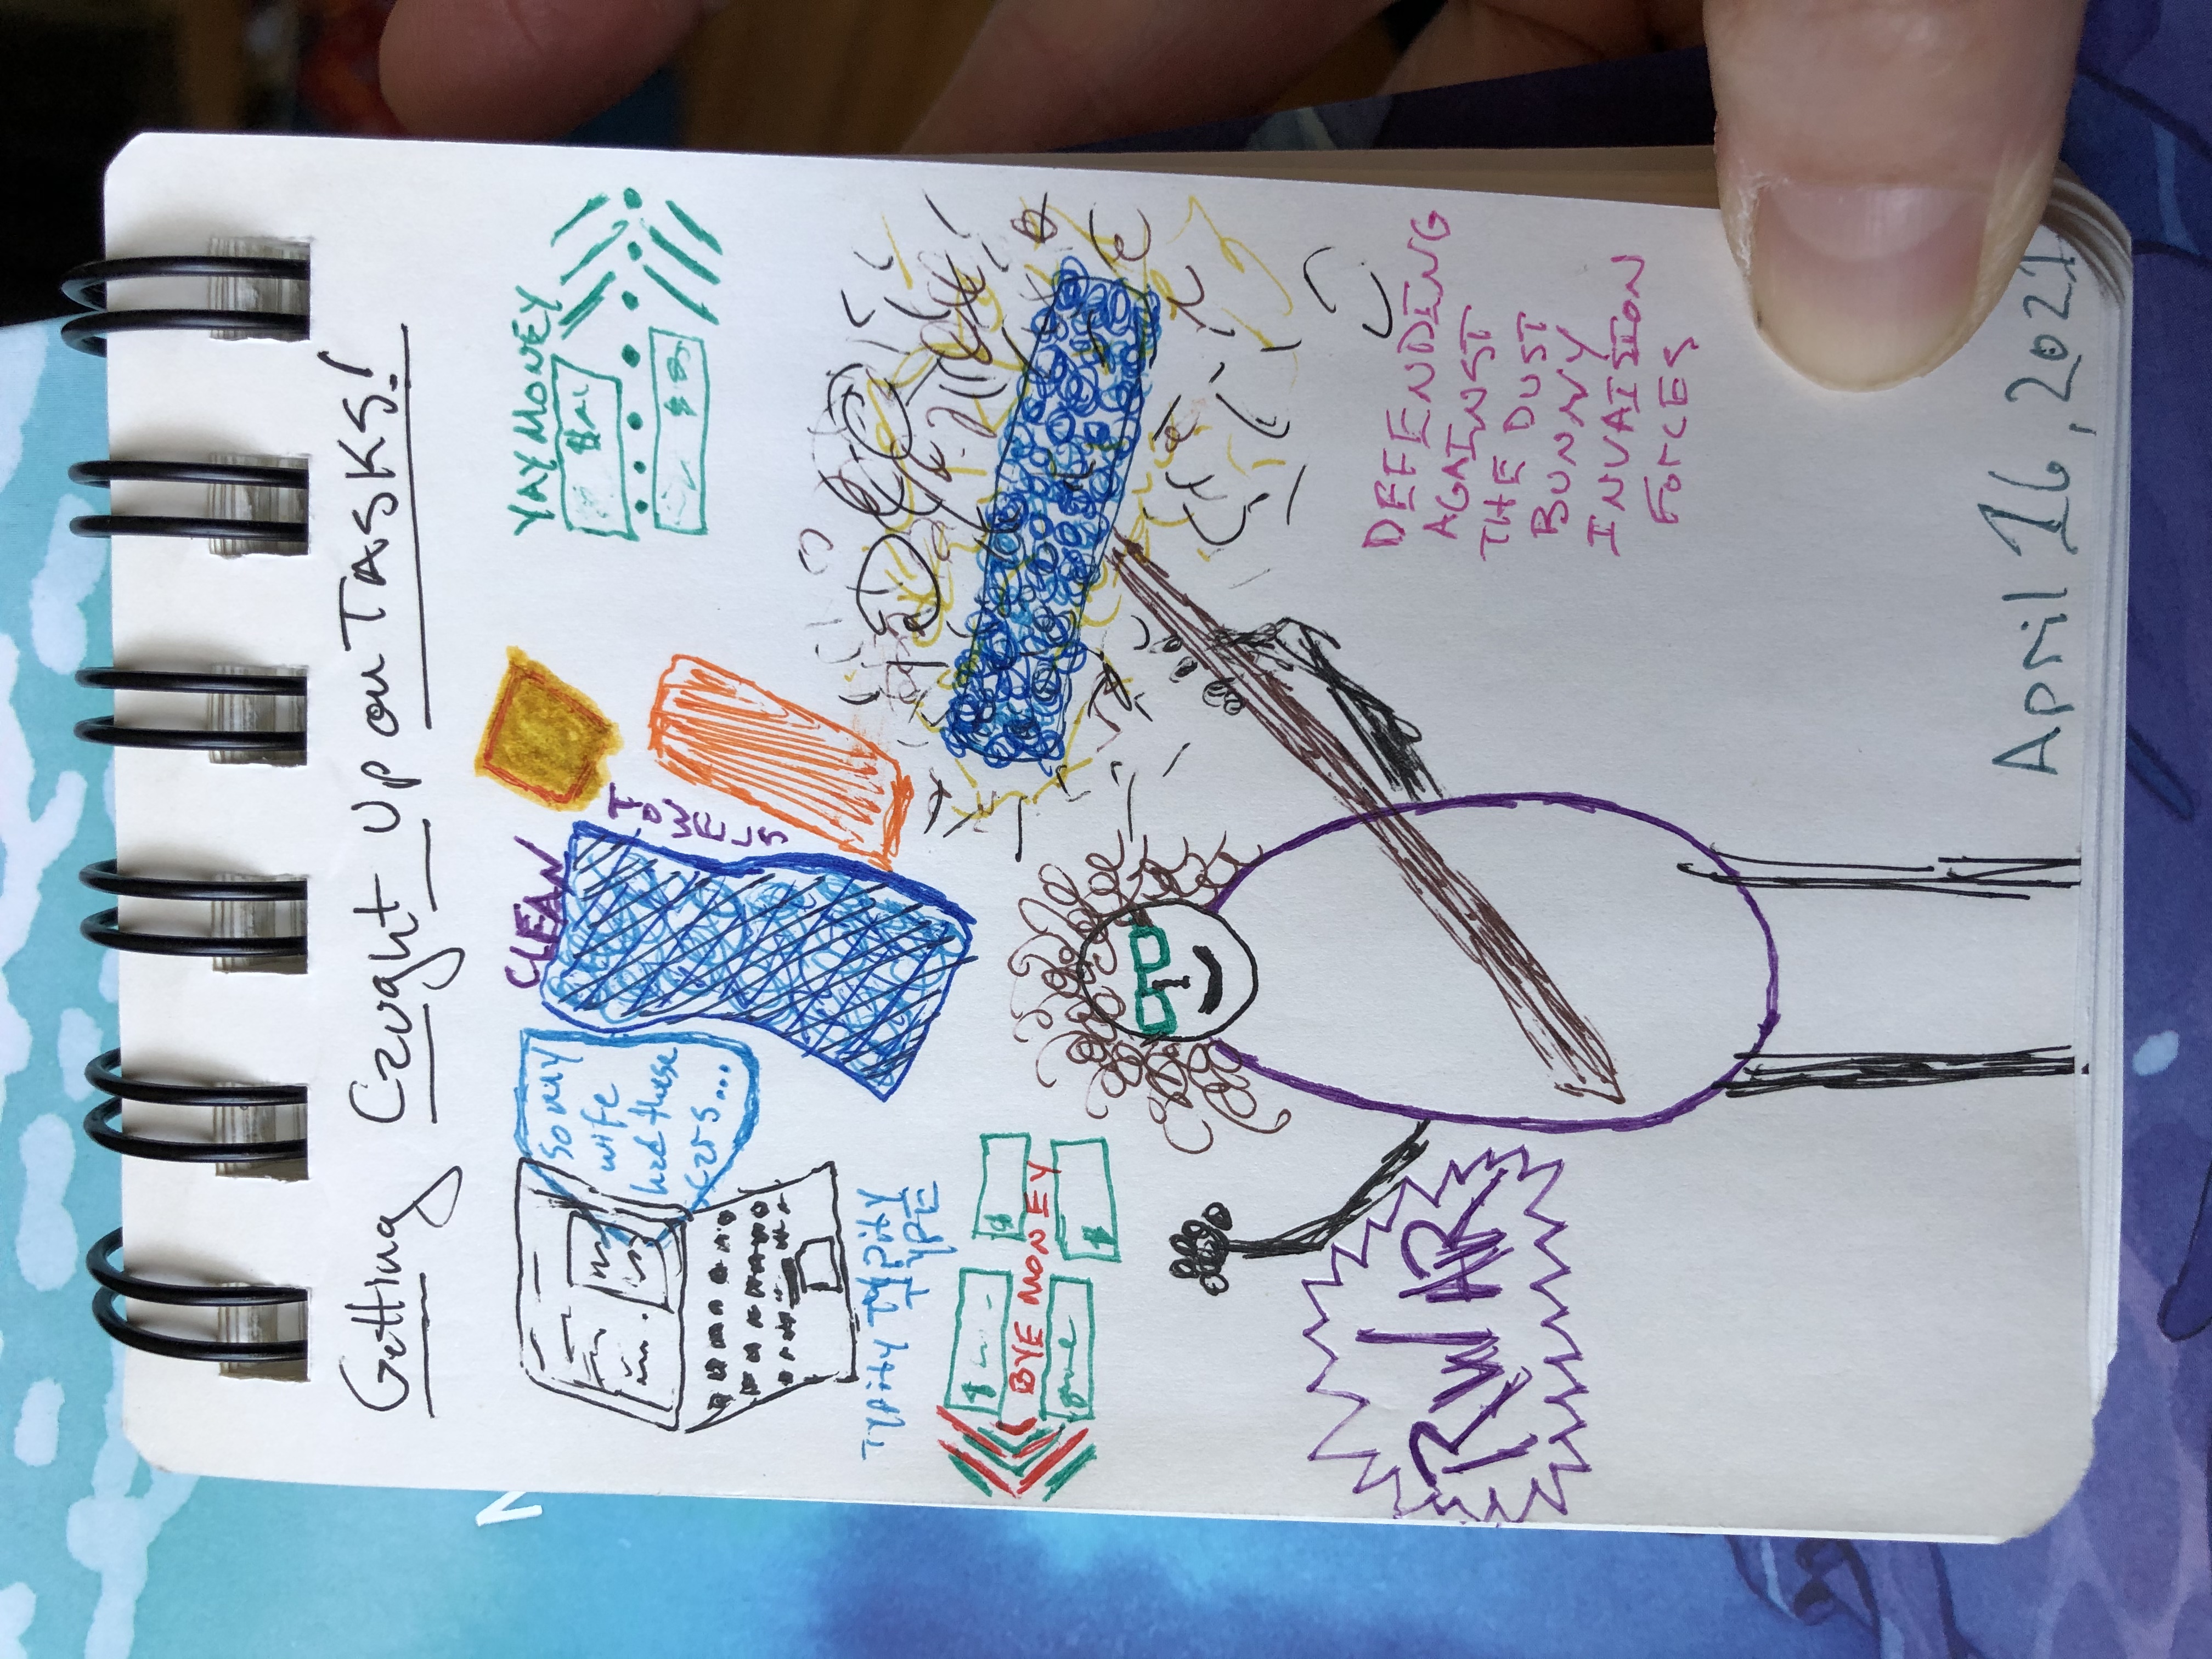 Getting Caught Up on TASKS!
So my
wife
had these
scars...
CLEAN
TOWELS
YAY MONEY
TYPITY TYPITY
TYPE
$
$
BYE MONEY
$
RWAR
DEFENDING
AGAINST
THE DUST
BUNNY
INVAISION
FORCES
April 16, 2021